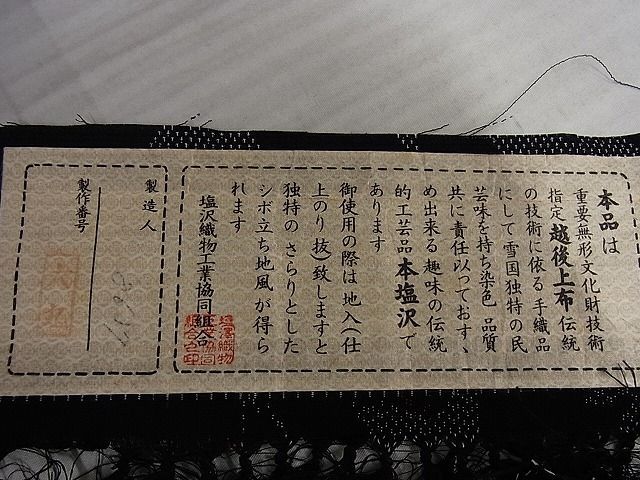 本品は
重要無形文化財技術
指定越後上布伝統
の技術に依る手織品
にして雪国独特の民
芸味を持ち染色品質
共に責任以っておすゝ
め出来る趣味の伝統
的工芸品本塩沢で
あります
御使用の際は地入(仕
上のり抜)致しますと
独特のさらりとした
シボ立ち地風が得ら
れます
塩沢織物工業協同組合
塩澤織物
工業協同
組合之印
製造人
製作番号